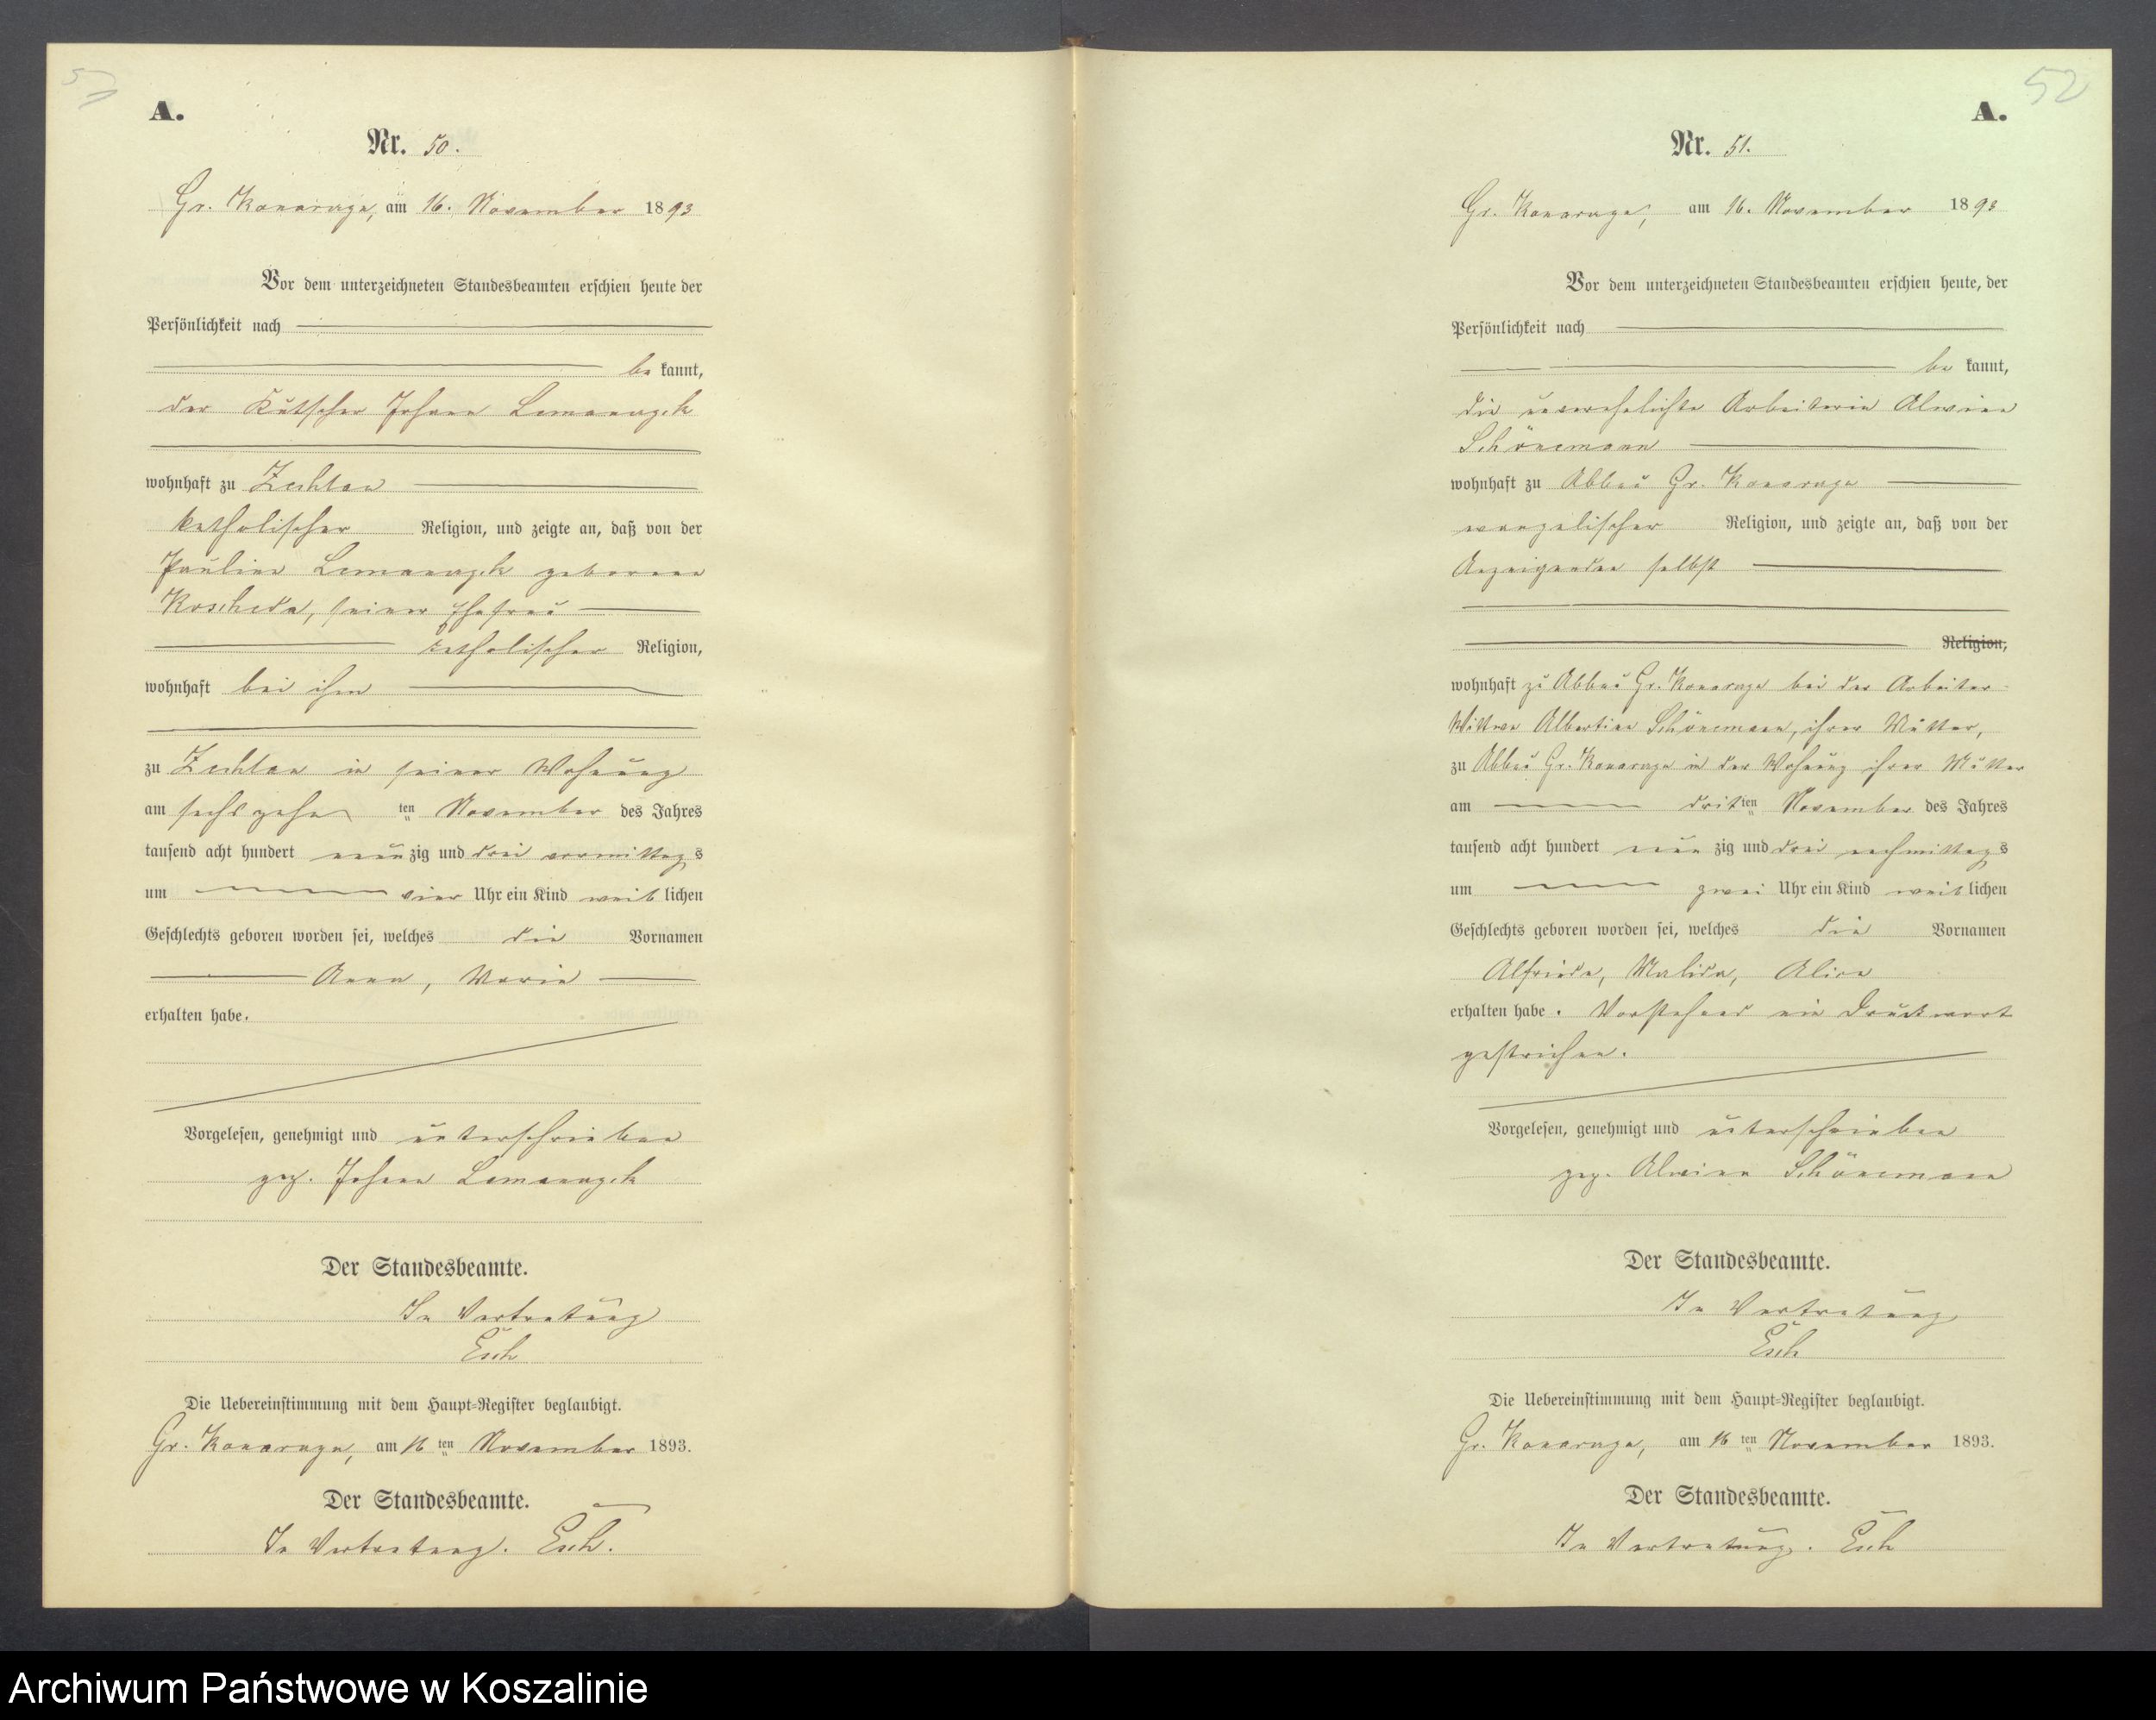 A.
Nr. 50.
Gr. Konarage, am 16. November 1893
Vor dem unterzeichneten Standesbeamten erschien heute der
Persönlichkeit nach
be kannt,
der Kutscher Johann Lemanczk
wohnhaft zu Zechlau
katholischer Religion, und zeigte an, daß von der
Pauline Lemanczk geborene
Roscheda, seiner Ehefrau
katholischer Religion,
wohnhaft bei ihm
zu Zechlau in seiner Wohnung
am sechszehn ten November des Jahres
tausend acht hundert neun zig und drei vormittag s
um vier Uhr ein Kind weib lichen
Geschlechts geboren worden sei, welches die Vornamen
Anna, Marie
erhalten habe.
Vorgelesen, genehmigt und unterschrieben
gez. Johann Lemanczk
Der Standesbeamte.
In Vertretung
Esch
Die Uebereinstimmung mit dem Haupt=Register beglaubigt.
Gr. Konarage, am 16 ten November 1893.
Der Standesbeamte.
In Vertretung. Esch.
52
A.
Nr. 51.
Gr. Konarage, am 16. November 1893
Vor dem unterzeichneten Standesbeamten erschien heute, der
Persönlichkeit nach
be kannt,
die unverehelichte Arbeiterin Alwine
Schönemann
wohnhaft zu Abbau Gr. Konarage
evangelischer Religion, und zeigte an, daß von der
Anzeigenden selbst
Religion,
wohnhaft zu Abbau Gr. Konarage bei der Arbeiter-
Wittwe Albertine Schönemann, ihrer Mutter,
zu Abbau Gr. Konarage in der Wohnung ihrer Mutter
am drit ten November des Jahres
tausend acht hundert neun zig und drei nachmittag s
um zwei Uhr ein Kind weib lichen
Geschlechts geboren worden sei, welches die Vornamen
Alfriede, Malida, Alice
erhalten habe. Vorstehend ein Druckwort
gestrichen.
Vorgelesen, genehmigt und unterschrieben
gez. Alwine Schönemann
Der Standesbeamte.
In Vertretung
Esch
Die Uebereinstimmung mit dem Haupt=Register beglaubigt.
Gr. Konarage, am 16 ten November 1893.
Der Standesbeamte.
In Vertretung. Esch
Archiwum Państwowe w Koszalinie